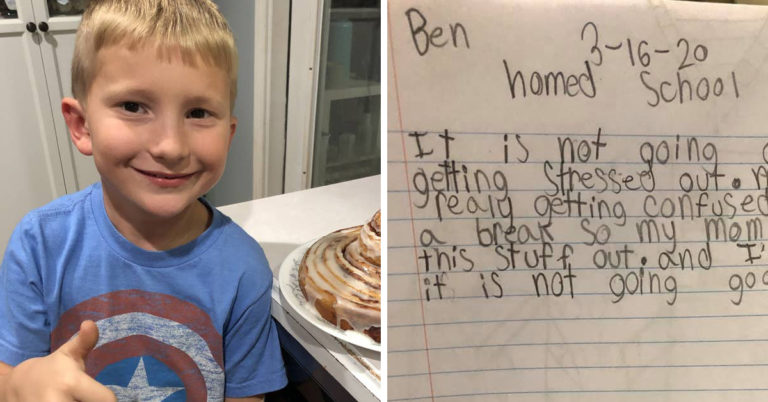 Ben
3-16-20
homed School
It is not going
getting stressed out.
realy getting confused
a break so my mom
this stuff out. and I'
it is not going